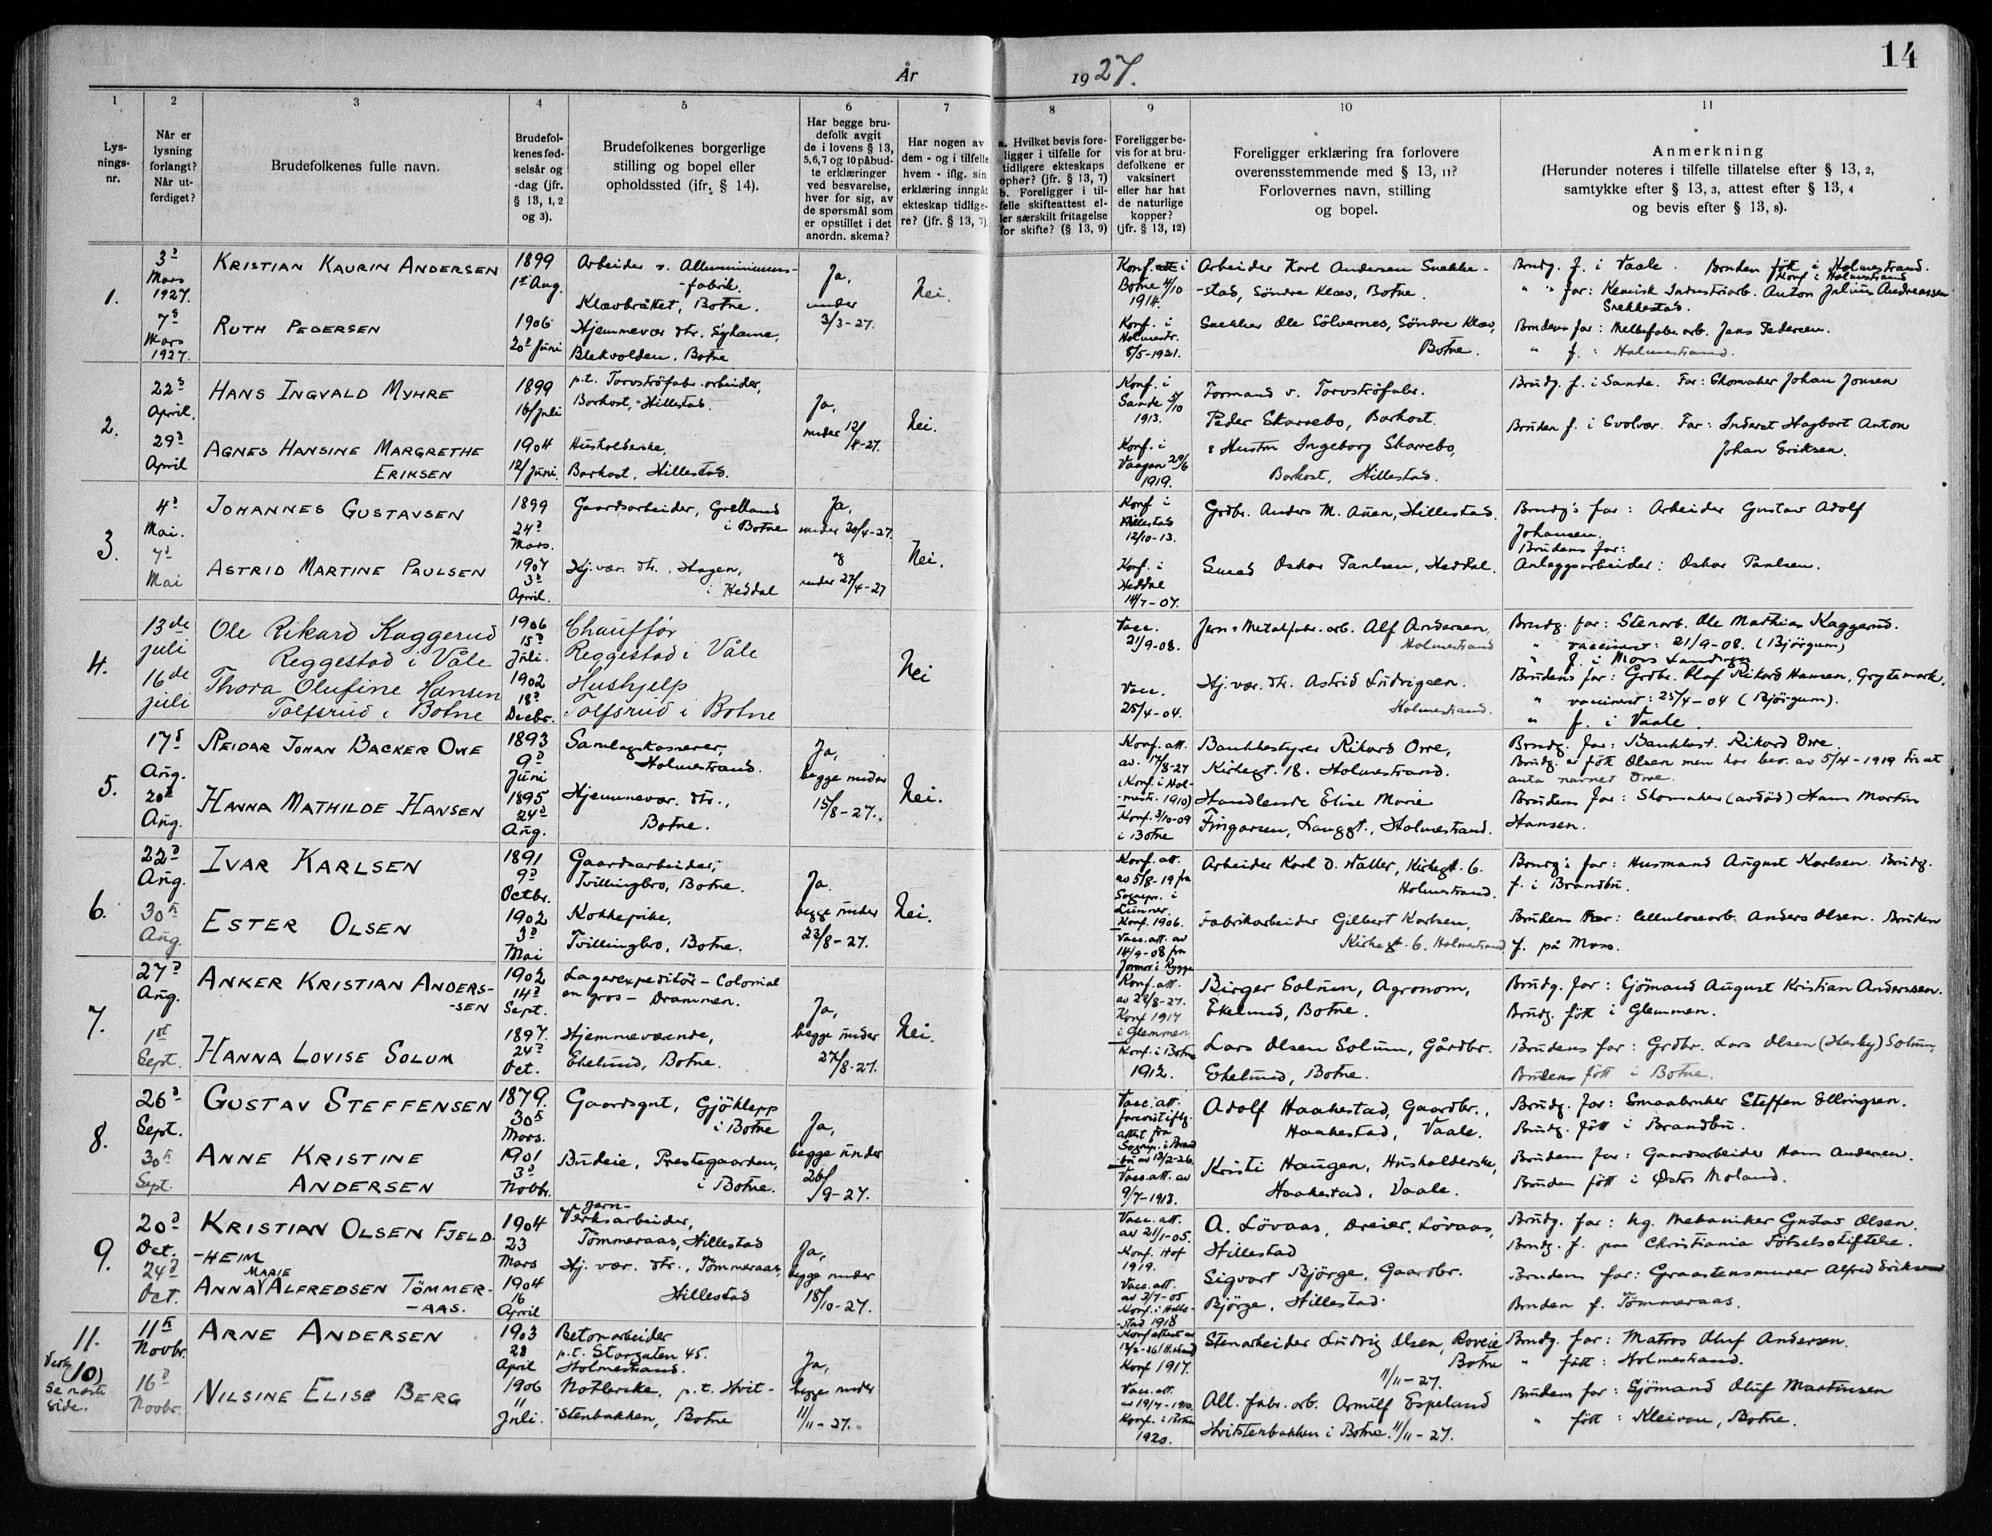 14
År 1927.
1 2 3 4 5 6 7 8 9 10 11
Lys-
nings-
nr.
Når er
lysning
forlangt?
Når ut-
ferdiget?
Brudefolkenes fulle navn.
Brudefol-
kenes fød-
selsår og
-dag (jfr.
§ 13, 1, 2
og 3).
Brudefolkenes borgerlige
stilling og bopel eller
opholdssted (jfr. § 14).
Har begge bru-
defolk avgit
de i lovens § 13,
5, 6, 7 og 10 påbud-
te erklæringer
ved besvarelse,
hver for sig, av
de spørsmål som
er opstillet i det
anordn. skema?
Har nogen av
dem - og i tilfelle
hvem - iflg. sin
erklæring inngåt
ekteskap tidlige-
re? (jfr. § 13, 7)
a. Hvilket bevis fore-
ligger i tilfelle for
tidligere ekteskaps
ophør? (jfr. § 13, 7)
b. Foreligger i til-
felle skifteattest el-
ler særskilt fritagelse
for skifte? (§ 13, 9)
Foreligger be-
vis for at bru-
defolkene er
vaksinert
eller har hat
de naturlige
kopper?
(jfr. § 13, 12)
Foreligger erklæring fra forlovere
overensstemmende med § 13, 11?
Forlovernes navn, stilling
og bopel.
Anmerkning
(Herunder noteres i tilfelle tillatelse efter § 13, 2,
samtykke efter § 13, 3, attest efter § 13, 4
og bevis efter § 13, 8).
1.
3d
Mars
1927.
7d
Mars
1927.
Kristian Kaurin Andersen
Ruth Pedersen
1899
1st Aug.
1906
20d Juni
Arbeider v. Alluminiums-
-fabrik.
Klævbråttet, Botne.
Hjemmevær. dtr.
Blekvolden, Botne
Ja,
under
3/3-27.
Nei.
Konf. i
Botne 4/10
1914.
Konf. i
Holmestr.
8/5-1921.
Arbeider Karl Andersen Snekke-
-stad, Söndre Klæv, Botne.
Snekker Ole Sölvernes, Söndre Klæv,
Botne.
Brudg. f. i Vaale. Bruden født i Holmestrand.
Konf. i Holmestrand
" " far: Kemisk Industriarb. Anton Julius Andreassen
Snekkestad.
Brudens far: Melkefabr.arb. Jens Pedersen.
" f. : Holmestrand.
2.
22d
April.
29d
April
Hans Ingvald Myhre
Agnes Hansine Margrethe
Eriksen
1899
16/Juli
1904
12/Juni
p.t. Torvströfabr.arbeider,
Borkost, Hillestad.
Husholderske,
Borkost, Hillestad.
Ja,
under 12/
/4-27.
Nei.
Konf. i
Sande 5/10
1913.
Konf. i
Vaagan 29/6
1919.
Formand v. Torvströfabr.
Peder Skarrebo, Borkost.
& Hustru Ingeborg Skarebo,
Borkost, Hillestad.
Brudg. f. i Sande. Far: Skomaker Johan Jonsen
Bruden f. i Svolvær. Far: Inderst Hagbart Anton
Johan Eriksen.
3.
4d
Mai.
7d
Mai
Johannes Gustavsen
Astrid Martine Paulsen
1899
24d
Mars.
1907
3d
April.
Gaardsarbeider, Grelland
i Botne
Hj.vær. dtr., Hagen,
i Heddal
Ja,
under 20/4-27.
og
under 27/4-27
Nei.
Konf. i
Hillestad
12/10-13.
Konf. i
Heddal
14/7-07.
Grdbr. Anders M. Auen, Hillestad.
Smed Oskar Paulsen, Heddal.
Brudg's far: Arbeider Gustav Adolf
Johansen.
Brudens far:
Anleggsarbeider: Oskar Paulsen.
4.
13de
juli
16de
juli
Ole Rikard Kaggerud
Reggestad i Våle
Thora Olufine Hansen
Tolfsrud i Botne
1906
15d
Juli.
1902
18d
Decbr.
Chauffør
Reggestad i Våle
Hushjelp
Tolfsrud i Botne
Nei
Vacc.
21/9-08.
Vacc.
25/4-04.
Jern & Metalfabr.arb. Alf Andersen,
Holmestrand
Hj.vær. dtr. Astrid Ludvigsen.
Holmestrand.
Brudg. far: Stenarb. Ole Mathias Kaggerud.
" vaccinert: 21/9-08. (Bjørgum)
" f. i Mons
Brudens far: Grdbr. Olaf Rikard Hansen, Grytemark.
" vaccinert: 25/4-04 (Bjørgum).
" f. i Vaale.
5.
17d
Aug.
20d
Aug.
Reidar Johan Backer Owe
Hanna Mathilde Hansen
1893
9d
Juni
1895
24d
Aug.
Samlagskasserer,
Holmestrand.
Hjemmevær. dtr.,
Botne.
Ja,
begge under
15/
/8-27.
Nei.
Konf. att.
av. 17/8-27
(Konf. i Hol-
-mestr. 1910)
Konf. 3/10-09
i Botne
Bankkestyrer Rikard Owe,
Kirkegt. 18. Holmestrand.
Handlende Elise Marie
Fingarsen, Langgt., Holmestrand.
Brudg. far: Bankbest. Rikard Owe.
Brudg. er født Olsen men har bev. av 5/4-1919 for at
anta navnet Owe.
Brudens far: Skomaker (avdød) Hans Martin
Hansen.
6.
22d
Aug.
30te
Aug.
Ivar Karlsen
Ester Olsen
1891
9d
Octbr.
1902
3d
Mai
Gaardsarbeider,
Tvillingbro, Botne.
Kokkepike,
Tvillingbro, Botne.
Ja.
begge under
22/
/8-27.
Nei.
Konf. att.
av 5/8-19 fra
Sognepr. i
Lunner.
Konf. 1906.
Vacc. att. av
14/9-08 fra
Jormor i Rygge
Arbeider Karl O. Waller, Kirkegt. 6.
Holmestrand.
Fabrikarbeider Gilbert Karlsen,
Kirkegt. 6. Holmestrand
Brudg's far: Husmand August Karlsen. Brudg.
f. i Brandbu.
Brudens far: Cellulosearb. Anders Olsen. Bruden
f. på Moss.
7.
27d
Aug.
1st
Sept.
Anker Kristian Anders-
-sen
Hanna Lovise Solum
1902
14d
Sept.
1897.
24d
Oct.
Lagerexpeditör - Colonial
en gros - Drammen.
Hjemmeværende,
Ekelund, Botne.
Ja,
begge under
27/
/8-27.
Nei.
Konf. att.
av 22/8-27.
Konf 1917
i Glemmen
Konf. i Botne
1912.
Birger Solum, Agronom,
Ekelund, Botne.
Lars Olsen Solum, Gårdbr.
Ekelund, Botne.
Brudg. far: Sjömand August Kristian Anderssen.
Brudg. født i Glemmen.
Brudens far: Grdbr. Lars Olsen (Hesby) Solum,
Brudens født i Botne.
8.
26d
Sept.
30te
Sept.
Gustav Steffensen
Anne Kristine
Andersen
1879.
30te
Mars.
1901
3d
Novbr.
Gaardsgut, Gjöklepp
i Botne
Budeie, Prestegaarden,
i Botne.
Ja,
begge under
26/
/9-27.
Vacc. att.
forevist iflg.
attest fra
Sognepr. i Brand
bu av 13/2-26.
Vacc. att. av
9/7-1913.
Adolf Haakestad, Gaardbr.,
Haakestad, Vaale.
Kristi Haugen, Husholderske,
Haakestad, Vaale.
Brudg. far: Smaabruker Steffen Ellingsen.
Brudg. født i Brandbu.
Brudens far: Gaardsarbeider Hans Andersen.
Bruden født i Östre Moland.
9.
20d
Oct.
24d
Oct.
Kristian Olsen Fjeld
-heim
Marie
Anna Alfredsen Tömmer-
-aas.
1904
23
Mars
1904
16
April
Jern-
Verksarbeider,
Tömmeraas, Hillestad
Hj. vær. dtr., Tömmeraas,
Hillestad
Ja,
begge under
18/
/10-27.
Vacc. att.
av 21/1-05.
Konf. Hof
1919.
Vacc. att.
av 3/7-05
Konf. i Hille-
-stad 1918
A. Lövaas, Dreier. Lövaas,
Hillestad
Sigvart Bjørge, Gaardbr.
Bjørge, Hillestad.
Brudg. far: hg. Mekaniker Gustav Olsen.
Brudg. f. paa Christiania Fötselsstiftelse.
Brudens far: Graastensmurer Alfred Eriksen
Bruden f. Tömmeraas.
11.
(10)
Se neste
side.
11te
Novbr.
16d
Novbr.
Arne Andersen
Nilsine Elise Berg
1903
28
April
1906
11
Juli.
Betonarbeider
p.t. Storgaten 45.
Holmestrand.
p.t. Hvit-
-stenbakken, Botne
Ja,
begge under
11/
/11-27.
Konf. 1917.
Vacc. att.
av 19/7-1910.
Konf. i Botne
1920.
Stenarbeider Ludvig Olsen, Roveie
Botne
11/11-27.
All. fabr. arb. Arnulf Espeland
Hvitstenbakken i Botne. 11/11-27.
Brudg. far: Matros Oluf Andersen.
" født: Holmestrand.
Brudens far: Sjömand Oluf Martinsen
" født: Kleivan, Botne.